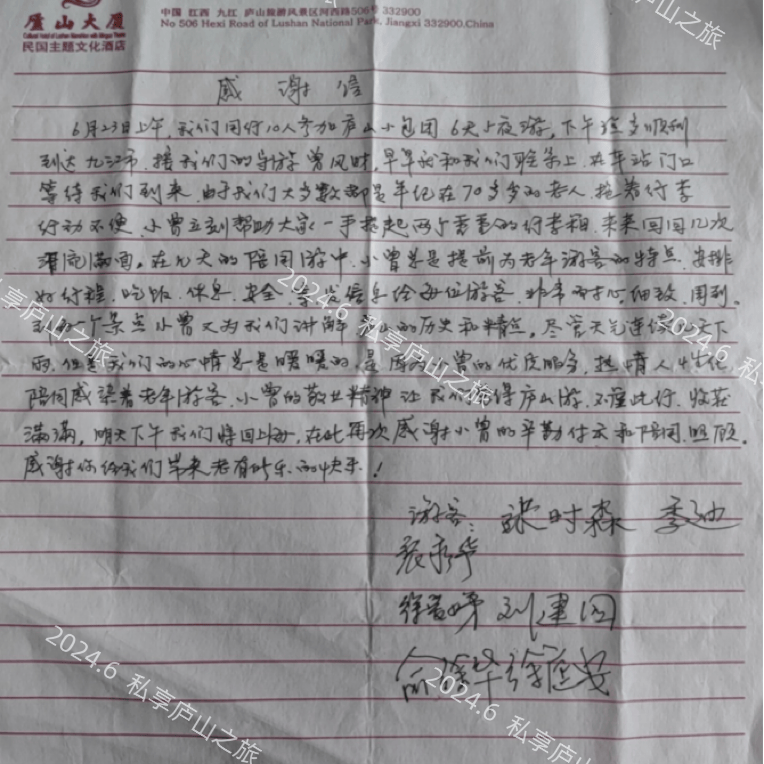 庐山大厦
Cultural Hotel of Lushan Mansion with Minguo Theme
民国主题文化酒店
中国 江西 九江 庐山旅游风景区河西路506号 332900
No 506 Hexi Road of Lushan National Park, Jiangxi 332900.China
感谢信
6月23日上午,我们同行10人参加庐山小包团6天5夜游,下午 顺利
到达九江市,接我们的导游曾凤时,早早就和我们联系上,在车站门口
等待我们到来,由于我们大多数都是年纪在70多岁的老人,拖着行李
行动不便,小曾立刻帮助大家一手提起两个重重的行李箱,来来回回几次
满面。在几天的陪同游中,小曾总是提前为老年游客的特点,安排
好行程、吃饭、休息、安全、等 信息给每位游客,非常耐心,细致,周到。
到每一个景点小曾又为我们讲解庐山的历史和精点。尽管天气连续 天下
雨,但是我们的心情总是暖暖的,是 小曾的优质服务,热情人性化
陪同感染着老年游客,小曾的敬业精神让我们 得庐山游,不虚此行,收获
满满,明天下午我们将回上海,在此再次感谢小曾的辛勤付出和陪同、照顾。
感谢你给我们带来老有所乐的快乐!
游客: 张时森 季
徐 刘建国
俞 华 徐
2024.6 私享庐山之旅
2024.6 私享庐山之旅